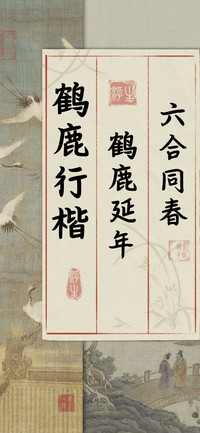 六合同春
鹤鹿延年
鹤鹿行楷